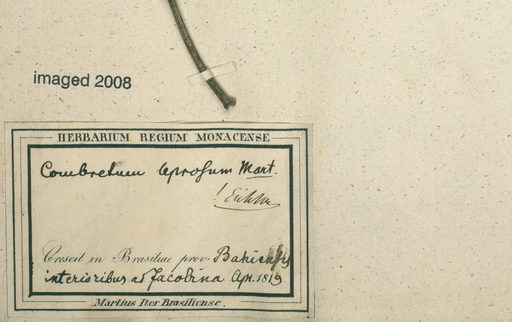 imaged 2008
HERBARIUM REGIUM MONACENSE
Combretum leprosum Mart.
! Eichler
Crescit in Brasiliae prov. Bahiensis
interioribus ad Jacobina Apr. 1819
Martius Iter Brasiliense.